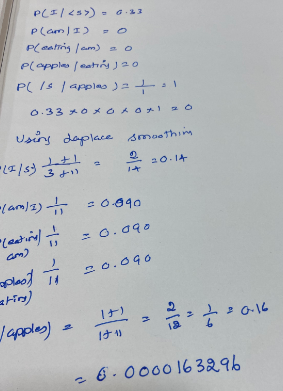 P(I/<s>) = 0.33
P(am/I) = 0
P(eating/am) = 0
P(apples/eating) = 0
P(/s/apples) = 1/1 = 1
0.33 x 0 x 0 x 0 x 1 = 0
Using laplace smoothin
(I/s) 1+1/3+11 = 2/14 = 0.14
(am/I) 1/11 = 0.090
(eating/am) 1/11 = 0.090
apples/ating) 1/11 = 0.090
/apples) = 1+1/1+11 = 2/12 = 1/6 = 0.16
= 0.0000163296